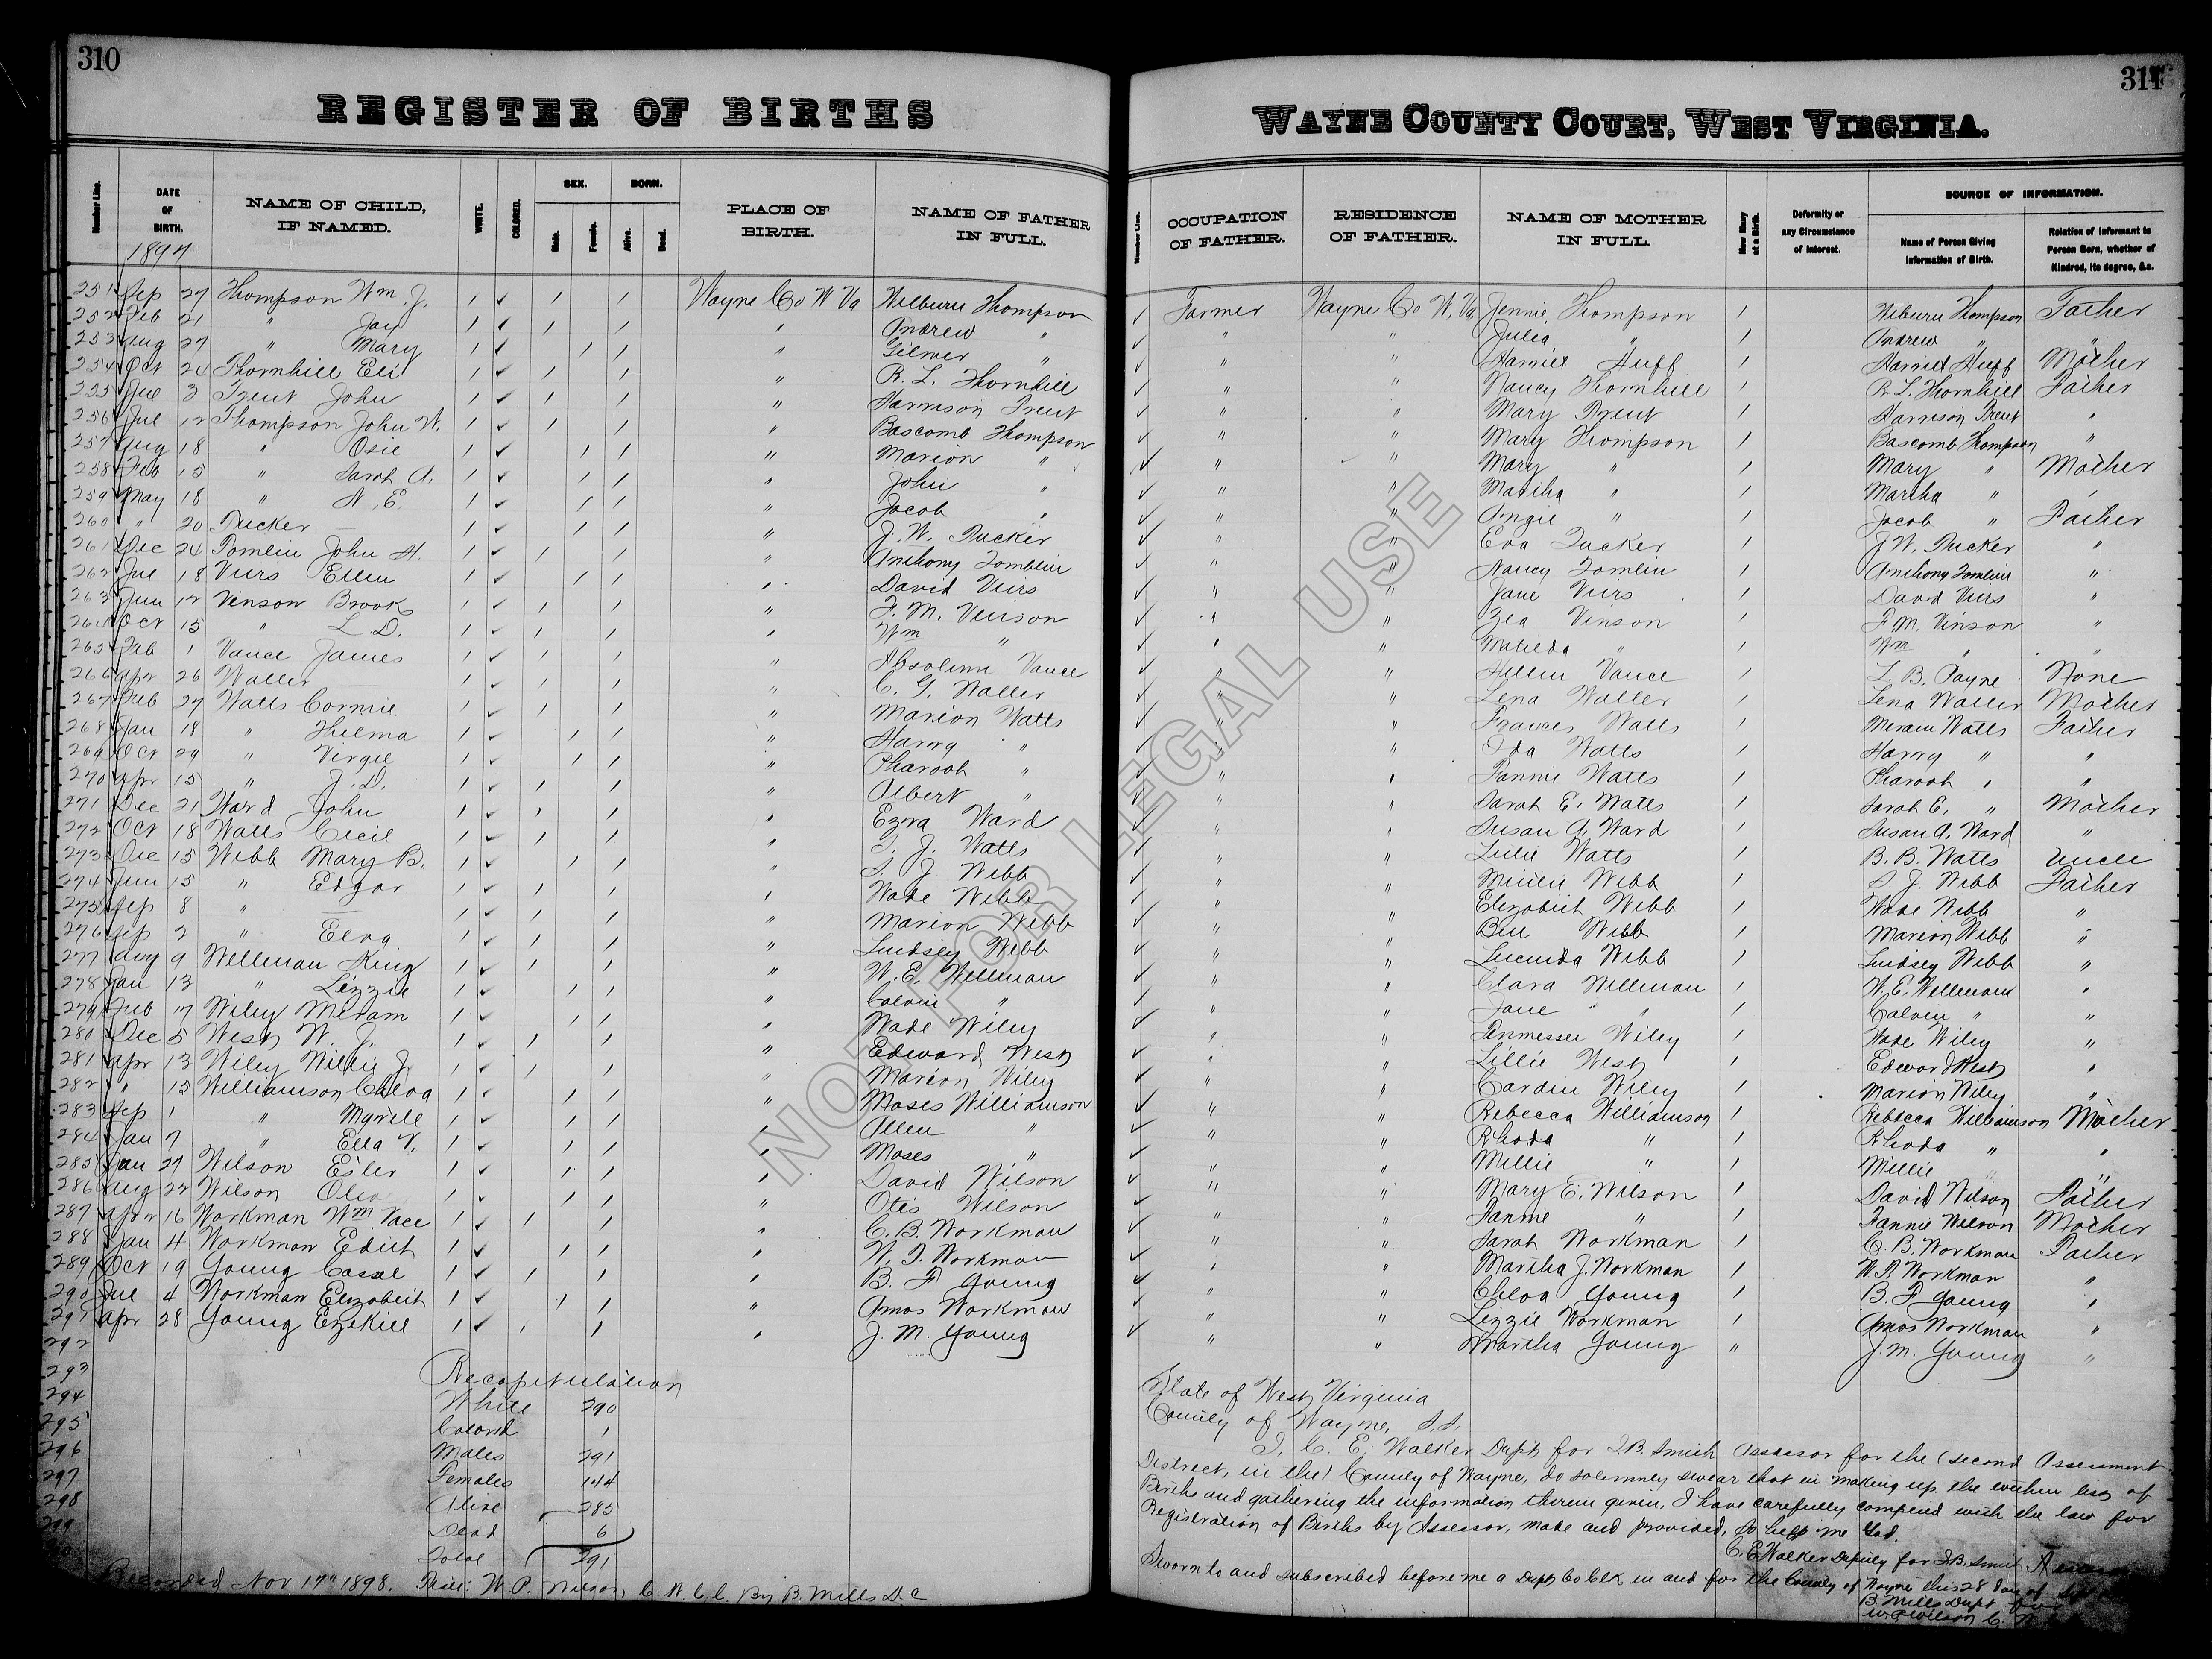 310
REGISTER OF BIRTHS
Number Line. DATE OF BIRTH. NAME OF CHILD, IF NAMED. WHITE. COLORED. SEX. Male. Female. BORN. Alive. Dead. PLACE OF BIRTH. NAME OF FATHER IN FULL.
1897
251 Sep 27 Thompson Wm. J. Wayne Co W Va Wilburn Thompson
252 Feb 21 " Jay " Andrew "
253 Aug 27 " Mary " Gilmer "
254 Oct 24 Thornhill Eli " R. L. Thornhill
255 Jul 3 Trent John " Harrison Trent
256 Jul 12 Thompson John W. " Bascomb Thompson
257 Aug 18 " Osie " Marion "
258 Feb 15 " Sarah A. " John "
259 May 18 " N. E. " Jacob "
260 " 20 Tucker — " J. W. Tucker
261 Dec 24 Tomlin John H. " Anthony Tomblin
262 Jul 18 Viirs Ellen " David Viirs
263 Jun 12 Vinson Brooks " F. M. Vinson
264 Oct 15 " L. D. " Wm "
265 Feb 1 Vance James " Absolem Vance
266 Apr 26 Waller " C. G. Waller
267 Feb 27 Watts Cormie " Marion Watts
268 Jan 18 " Thelma " Harry "
269 Oct 29 " Virgie " Pharoah "
270 Apr 15 " J. D. " Albert "
271 Dec 21 Ward John " Ezra Ward
272 Oct 18 Watts Cecil " T. J. Watts
273 Dec 15 Webb Mary B. " S. J. Webb
274 Jun 15 " Edgar " Wade Webb
275 Sep 8 " — " Marion Webb
276 Sep 2 " Elva " Lindsey Webb
277 Aug 9 Wellman King " W. E. Wellman
278 Jan 13 " Lizzie " Calvin "
279 Feb 17 Wiley Meram " Wade Wiley
280 Dec 5 West W. J. " Edward West
281 Apr 13 Wiley Willie J. " Marion Wiley
282 " 15 Williamson Chloa " Moses Williamson
283 Sep 1 " Myrtle " Allen "
284 Jan 7 " Ella V. " Moses "
285 Jan 27 Wilson Esler " David Wilson
286 Aug 22 Wilson Olia " Otis Wilson
287 Apr 16 Workman Wm Vace " C. B. Workman
288 Jan 4 Workman Edith " W. T. Workman
289 Oct 19 Young Cassel " B. F Young
290 Jul 4 Workman Elizabeth " Amos Workman
291 Apr 28 Young Ezekiel " J. M. Young
292
293 Recapitulation
294 White 290
295 Colored 1
296 Males 291
297 Females 144
298 Alive 285
299 Dead 6
Total 291
Recorded Nov 17" 1898. Test: W. P. Wilson, C. W. C. C. By B. Mills D. C
311
WAYNE COUNTY COURT, WEST VIRGINIA.
Number Line. OCCUPATION OF FATHER. RESIDENCE OF FATHER. NAME OF MOTHER IN FULL. How Many at a Birth. Deformity or any Circumstance of Interest. SOURCE OF INFORMATION. Name of Person Giving Information of Birth. Relation of Informant to Person Born, whether of Kindred, its degree, &c.
Farmer Wayne Co W. Va Jennie Thompson 1 Wilburn Thompson Father
" " Julia " 1 Andrew " "
" " Harriet Huff 1 Harriet Huff Mother
" " Nancy Thornhill 1 R L. Thornhill Father
" " Mary Trent 1 Harrison Trent "
" " Mary Thompson 1 Bascomb Thompson "
" " Mary " 1 Mary " Mother
" " Martha " 1 Martha " "
" " Angie " 1 Jacob " Father
" " Eva Tucker 1 J W. Tucker "
" " Nancy Tomlin 1 Anthony Tomlin "
" " Jane Viirs 1 David Viirs "
" " Zea Vinson 1 F. M. Vinson "
" " Matilda " 1 Wm " "
" " Hellen Vance 1 L. B. Payne None
" " Lena Waller 1 Lena Waller Mother
" " Frances Watts 1 Meraim Watts Father
" " Ida Watts 1 Harry " "
" " Fannie Watts 1 Pharoah " "
" " Sarah E. Watts 1 Sarah E. " Mother
" " Susan A. Ward 1 Susan A. Ward "
" " Lulie Watts 1 B. B. Watts Uncle
" " Millie Webb 1 S. J. Webb Father
" " Elizabeth Webb 1 Wade Webb "
" " Bell Webb 1 Marion Webb "
" " Lucinda Webb 1 Lindsey Webb "
" " Clara Wellman 1 W. E. Wellman "
" " Jane " 1 Calvin " "
" " Tennessee Wiley 1 Wade Wiley "
" " Lillie West 1 Edward West "
" " Carden Wiley 1 Marion Wiley "
" " Rebecca Williamson 1 Rebbeca Williamson Mother
" " Rhoda " 1 Rhoda " "
" " Millie " 1 Millie " "
" " Mary E. Wilson 1 David Wilson Father
" " Fannie " 1 Fannie Wilson Mother
" " Sarah Workman 1 C. B. Workman Father
" " Martha J. Workman 1 W. T. Workman "
" " Chloa Young 1 B. F Young "
" " Lizzie Workman 1 Amos Workman "
" " Martha Young " J. M. Young "
State of West Virginia
County of Wayne, S.S.
I, C. E. Walker Dept for I. B. Smith Assessor for the (second Assessment
District, in the) County of Wayne, do solemnly swear that in making up the within list of
Births and gathering the information therein given, I have carefully complied with the law for
Registration of Births by Assessor, made and provided, So help me God.
C. E Walker Deputy for I. B. Smith
Sworn to and subscribed before me a Dept Co Clk in and for the County of Wayne this 28 day of
B. Mills Dept for
W. P. Wilson C.
NOT FOR LEGAL USE